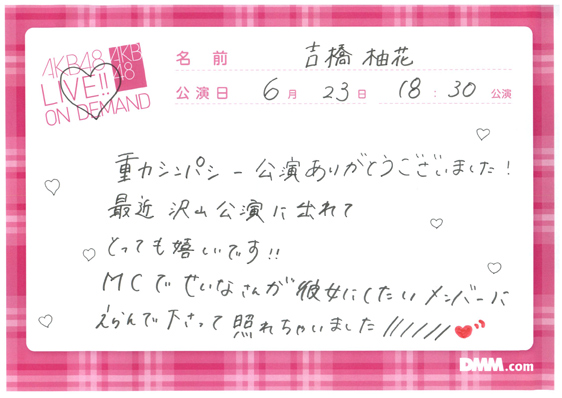 AKB48
LIVE!!
ON DEMAND
AKB
48
名前 吉橋柚花
公演日 6月23日 18:30 公演
重力シンパシー公演ありがとうございました!
最近沢山公演に出れて
とっても嬉しいです!!
MCでせいなさんが彼女にしたいメンバーに
えらんで下さって照れちゃいました//////
DMM.com